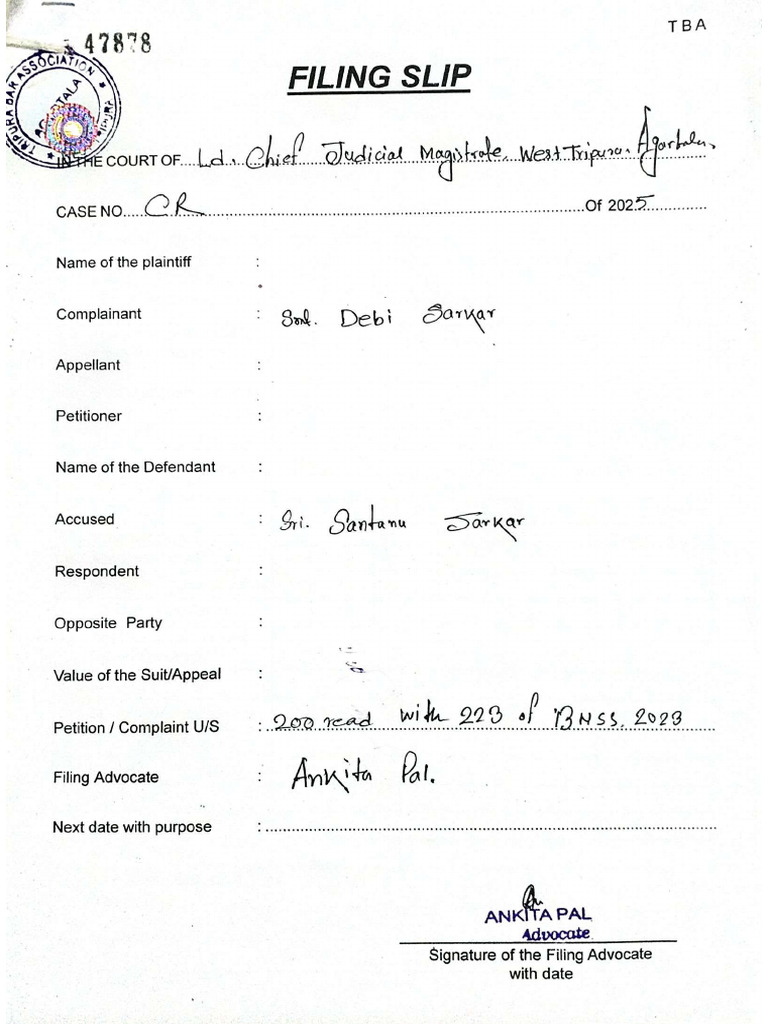 TBA
47878
TRIPURA BAR ASSOCIATION
AGARTALA
FILING SLIP
IN THE COURT OF Ld. Chief Judicial Magistrate, West Tripura, Agartala,
CASE NO. CR Of 2025
Name of the plaintiff :
Complainant : Smt. Debi Sarkar
Appellant :
Petitioner :
Name of the Defendant :
Accused : Sri. Santanu Sarkar
Respondent :
Opposite Party :
Value of the Suit/Appeal :
Petition / Complaint U/S : 200 read with 223 of BNSS, 2023
Filing Advocate : Ankita Pal.
Next date with purpose :
ANKITA PAL
Advocate
Signature of the Filing Advocate
with date